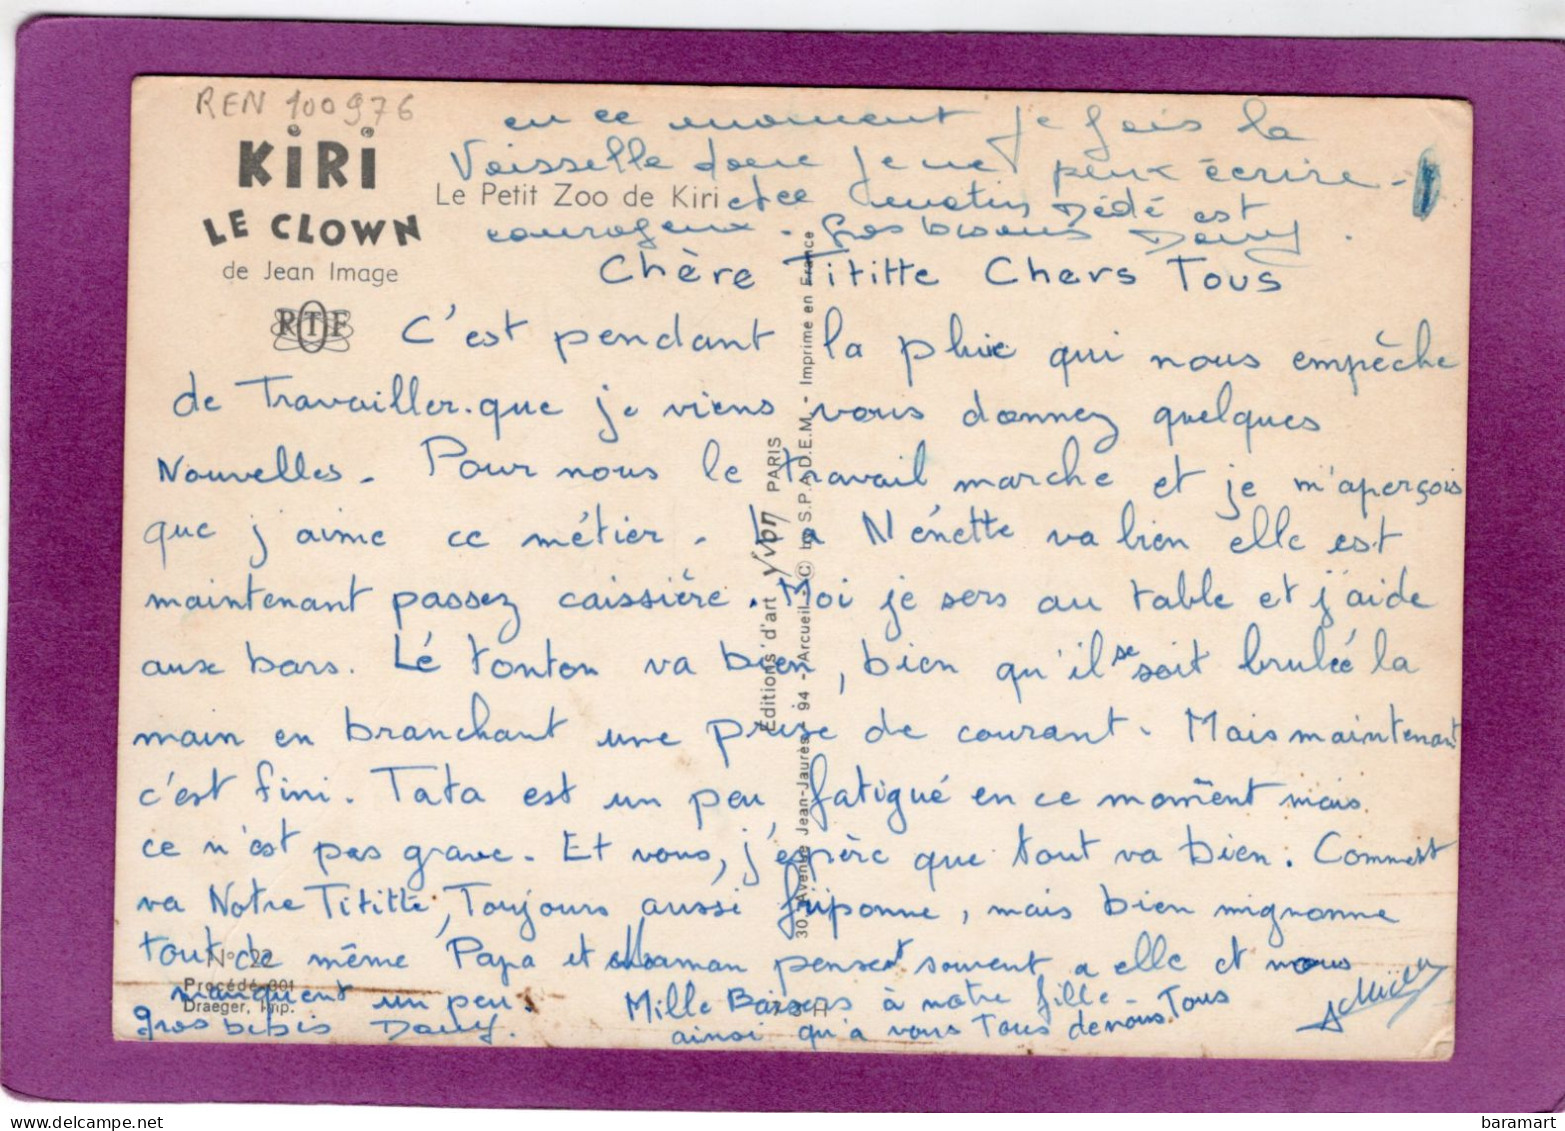 REN 100976
KiRi
LE CLOWN
de Jean Image
RTF
Le Petit Zoo de Kiri
en ce moment je fais la
Vaisselle donc je ne peux écrire -
et ce matin Dédé est
courageux. Gros bisous Dany.
Chère Tititte Chers Tous
C'est pendant la pluie qui nous empêche
de Travailler. que je viens vous donnez quelques
Nouvelles. Pour nous le travail marche et je m'aperçois
que j'aime ce métier. La Nénette va bien elle est
maintenant passez caissière. Moi je sers au table et j'aide
aux bars. Lé tonton va bien, bien qu'il se soit brulée la
main en branchant une prise de courant. Mais maintenant
c'est fini. Tata est un peu fatigué en ce moment mais
ce n'est pas grave. Et vous, j'espère que tout va bien. Comment
va Notre Tititte, Toujours aussi friponne, mais bien mignonne
tout de même Papa et Maman pensent souvent a elle et nous
manquent un peu. Mille Baisers à notre fille - Tous
gros bebis Dany. ainsi qu'a vous Tous de nous Tous
Editions d'art Yvon PARIS
30, Avenue Jean-Jaurès - 94 - Arcueil - © by S.P.A.D.E.M. - Imprimé en France
N° 22
Procédé 301
Draeger, Imp.
baramart